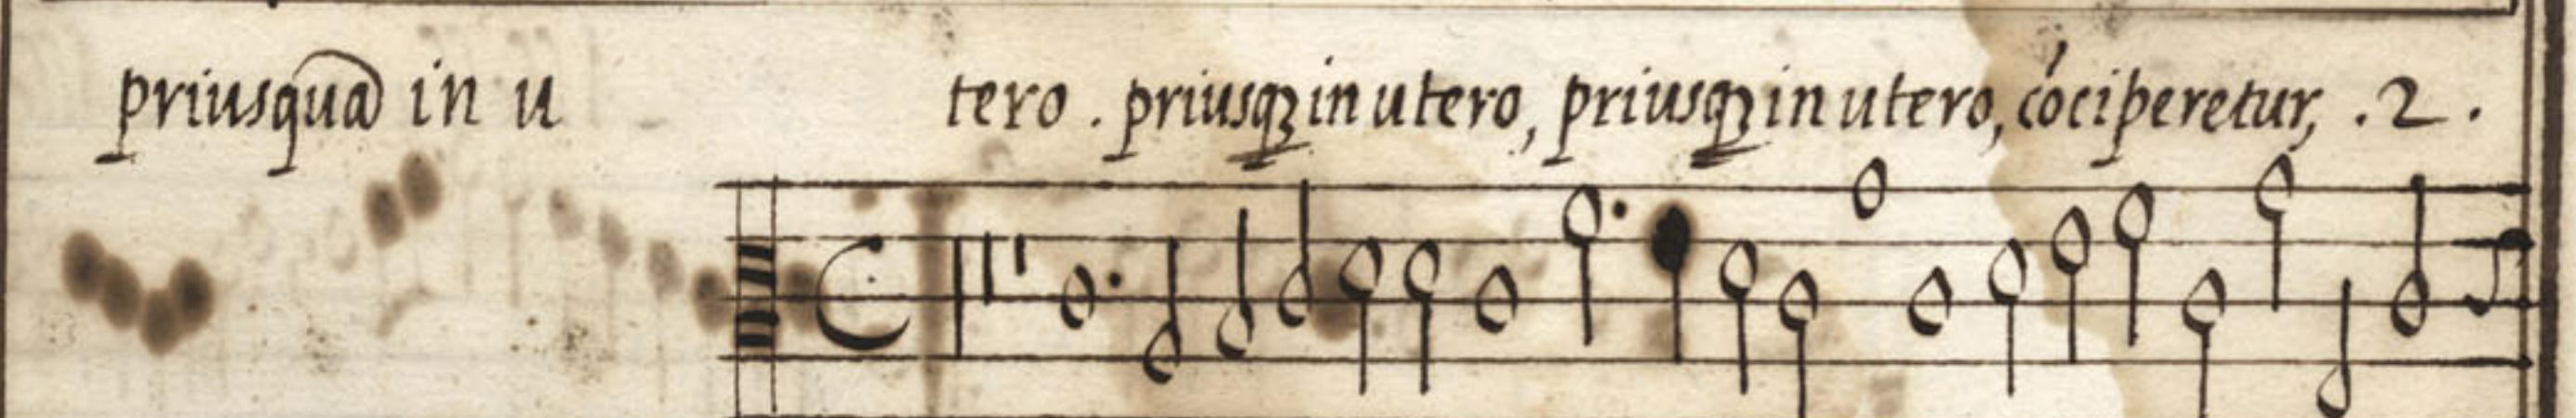 priusquã in u tero . priusqꝫ in utero, priusqꝫ in utero, cóciperetur, .2.